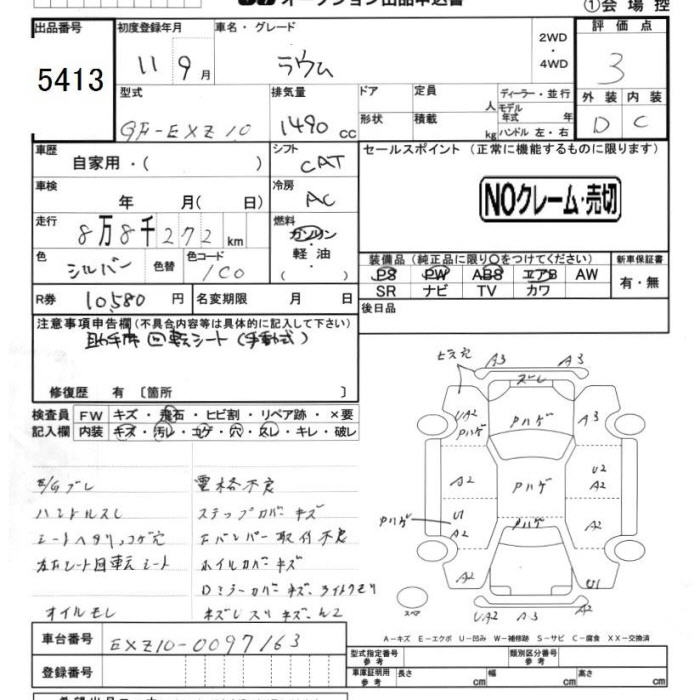 ①会場控
出品番号 初度登録年月 車名・グレード 評価点
5413
11 9月 ラウム 2WD・4WD 3
型式 排気量 ドア 定員 ディーラー・並行 外装 内装
GF-EXZ10 1490cc 人 モデル年式 年 D C
形状 積載 kg ハンドル 左・右
車歴 シフト セールスポイント(正常に機能するものに限ります)
自家用・( ) CAT
車検 冷房
年 月( 日) AC NOクレーム・売切
走行 燃料
8万8千272km ガソリン・軽油・( )
色 色替 色コード 装備品(純正品に限り○をつけてください) 新車保証書
シルバー 1C0 PS PW ABS エアB AW 有・無
SR ナビ TV カワ
R券 10,580円 名変期限 月 日 後日品
注意事項申告欄(不具合内容等は具体的に記入して下さい)
助手席 回転シート(手動式)
修復歴 有〔箇所 〕
検査員 FW キズ・飛石・ヒビ割・リペア跡・×要
記入欄 内装 キズ・汚レ・コゲ・穴・スレ・キレ・破レ
E/Gブレ 電格不良
ハンドルスレ ステップカバーキズ
シートヘタリ、コゲ穴 Fバンパー取付不良
左Fシート回転シート ホイルカバーキズ
Dミラーカバーキズ、ライトクモリ
オイルモレ
ビス穴 A3 A3
ズレ
UA2 Pハゲ Pハゲ A3
A2 Pハゲ U2 A2
Pハゲ U1 A2 A2
A2 U1
スペア UA2 A3 A2
A-キズ E-エクボ U-凹み W-補修跡 S-サビ C-腐食 XX-交換済
車台番号 EXZ10-0097163
型式指定番号参考 類別区分番号参考
登録番号 車庫証明用参考 長さ cm 幅 cm 高さ cm